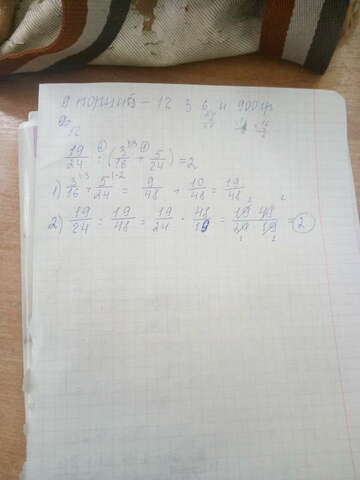 9 порций - 12 3 6 и 900гр
19/24 : (3/16 + 5/24) = 2
1) 3/16 + 5/24 = 9/48 + 10/48 = 19/48
2) 19/24 : 19/48 = 19/24 · 48/19 = 19·48/24·19 = 2